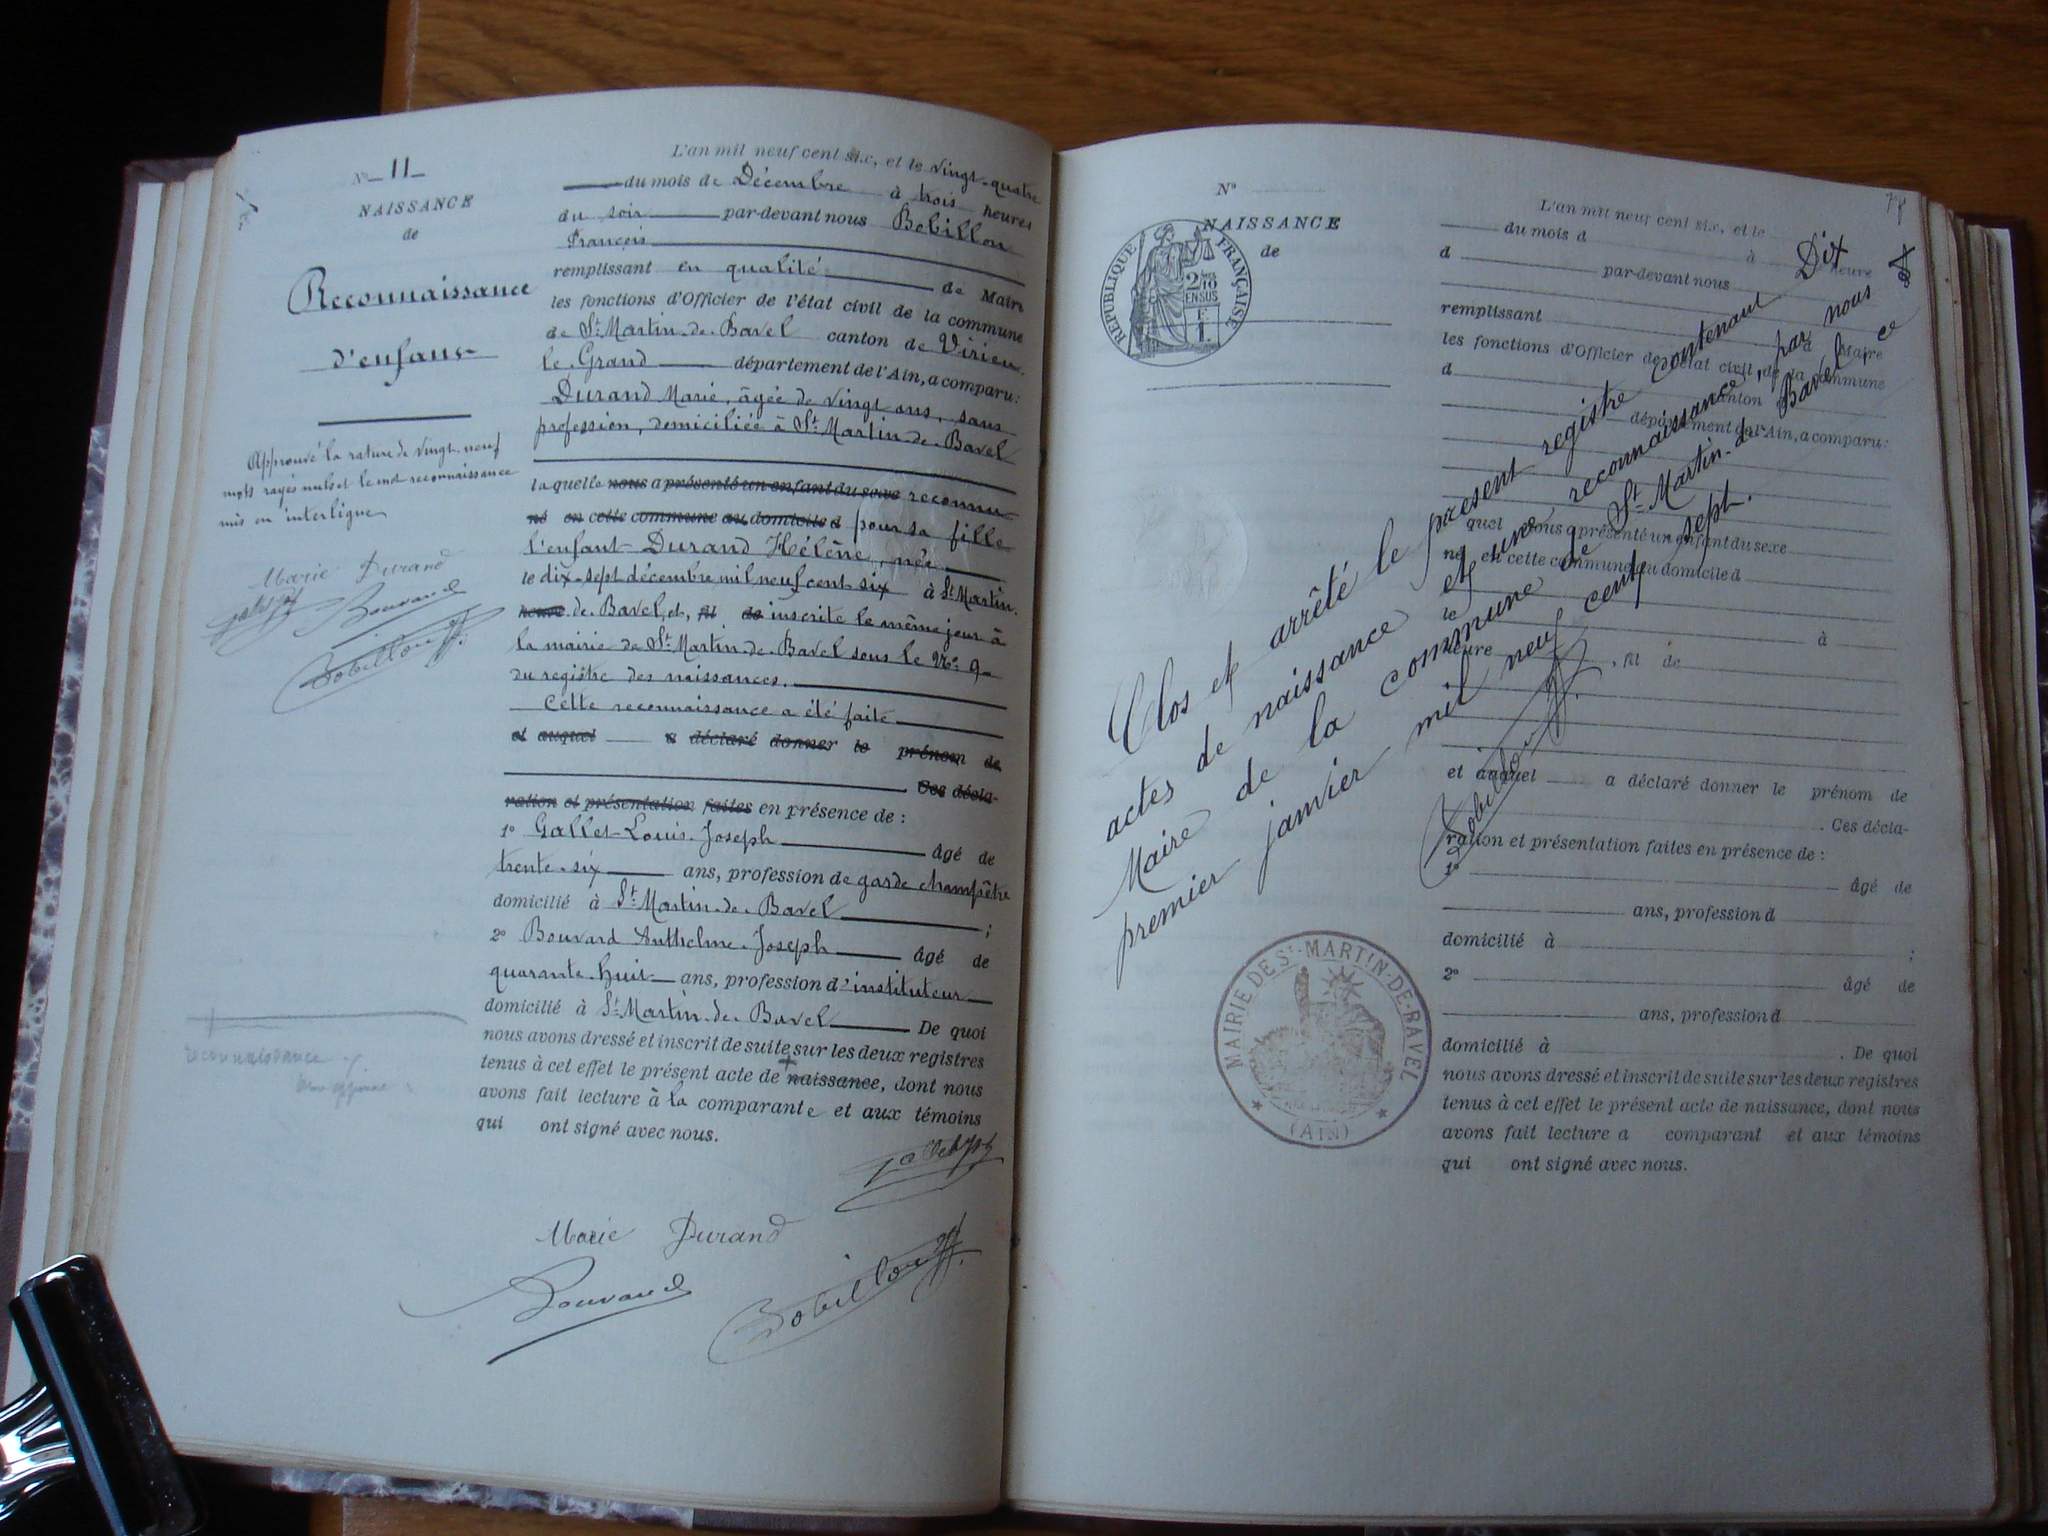 N° 11
NAISSANCE
de
Reconnaissance
d'enfant
Approuvé la rature de vingt-neuf
mots rayés nuls et le mot reconnaissance
mis en interligne
Marie Durand
Bouvard
Bobillon
reconnaissance
L'an mil neuf cent six, et le vingt-quatre
du mois de Décembre à trois heures
du soir par-devant nous Bobillon
François
remplissant en qualité de Maire
les fonctions d'Officier de l'état civil de la commune
de St Martin-de-Bavel canton de Virieu
le-Grand département de l'Ain, a comparu:
Durand Marie, âgée de vingt ans, sans
profession, domiciliée à St Martin-de-Bavel
laquelle nous a présenté un enfant du sexe reconnu
né en cette commune au domicile d pour sa fille
l'enfant Durand Hélène, née
le dix-sept décembre mil neuf cent six à St Martin-
heure de Bavel, et, fil de inscrite le même jour à
la mairie de St Martin-de-Bavel sous le No 9
du registre des naissances.
Cette reconnaissance a été faite
et auquel a déclaré donner le prénom de
Ces décla-
ration et présentation faites en présence de :
1° Gallet Louis-Joseph âgé de
trente-six ans, profession de garde champêtre
domicilié à St Martin-de-Bavel ;
2° Bouvard Anthelme-Joseph âgé de
quarante-huit ans, profession d'instituteur
domicilié à St Martin-de-Bavel De quoi
nous avons dressé et inscrit de suite sur les deux registres
tenus à cet effet le présent acte de + naissance, dont nous
avons fait lecture à la comparante et aux témoins
qui ont signé avec nous.
Marie Durand
Bouvard
Bobillon
N°
NAISSANCE
de
RÉPUBLIQUE FRANÇAISE
2/10
EN SUS
F
1
L'an mil neuf cent six, et le
du mois d à heure
d par-devant nous
remplissant d Maire
les fonctions d'Officier de l'état civil de la commune
d canton d
département de l'Ain, a comparu:
quel nous a présenté un enfant du sexe
né en cette commune au domicile d
le à
heure , fil de
et auquel a déclaré donner le prénom de
. Ces décla-
ration et présentation faites en présence de :
1° âgé de
ans, profession d
domicilié à ;
2° âgé de
ans, profession d
domicilié à . De quoi
nous avons dressé et inscrit de suite sur les deux registres
tenus à cet effet le présent acte de naissance, dont nous
avons fait lecture a comparant et aux témoins
qui ont signé avec nous.
Clos et arrêté le présent registre contenant Dix
actes de naissance et une reconnaissance, par nous
Maire de la commune de St Martin-de-Bavel, ce
premier janvier mil neuf cent sept.
Bobillon
MAIRIE DE ST-MARTIN-DE-BAVEL
(AIN)